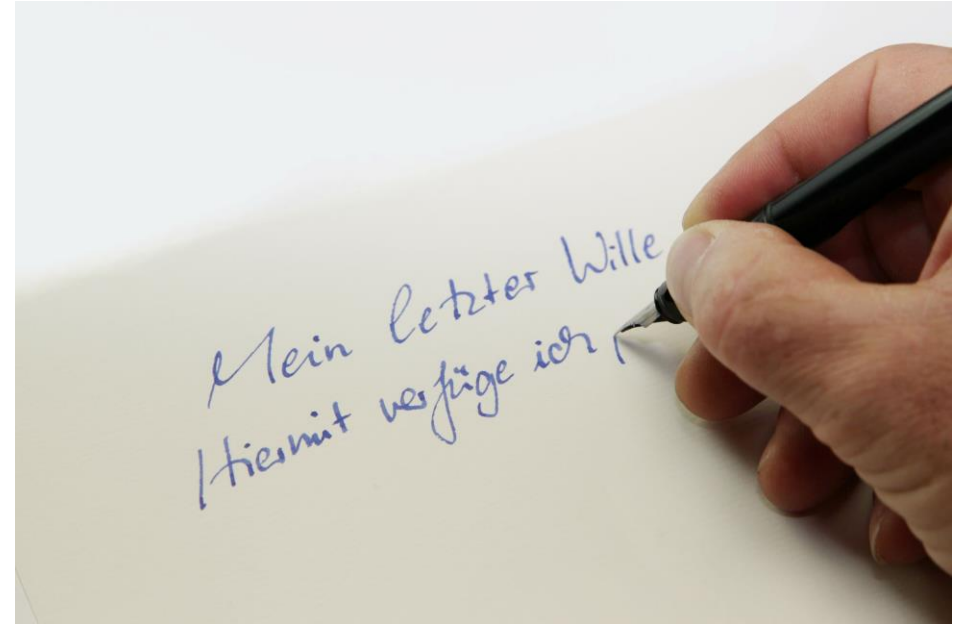 Mein letzter Wille
Hiermit verfüge ich,